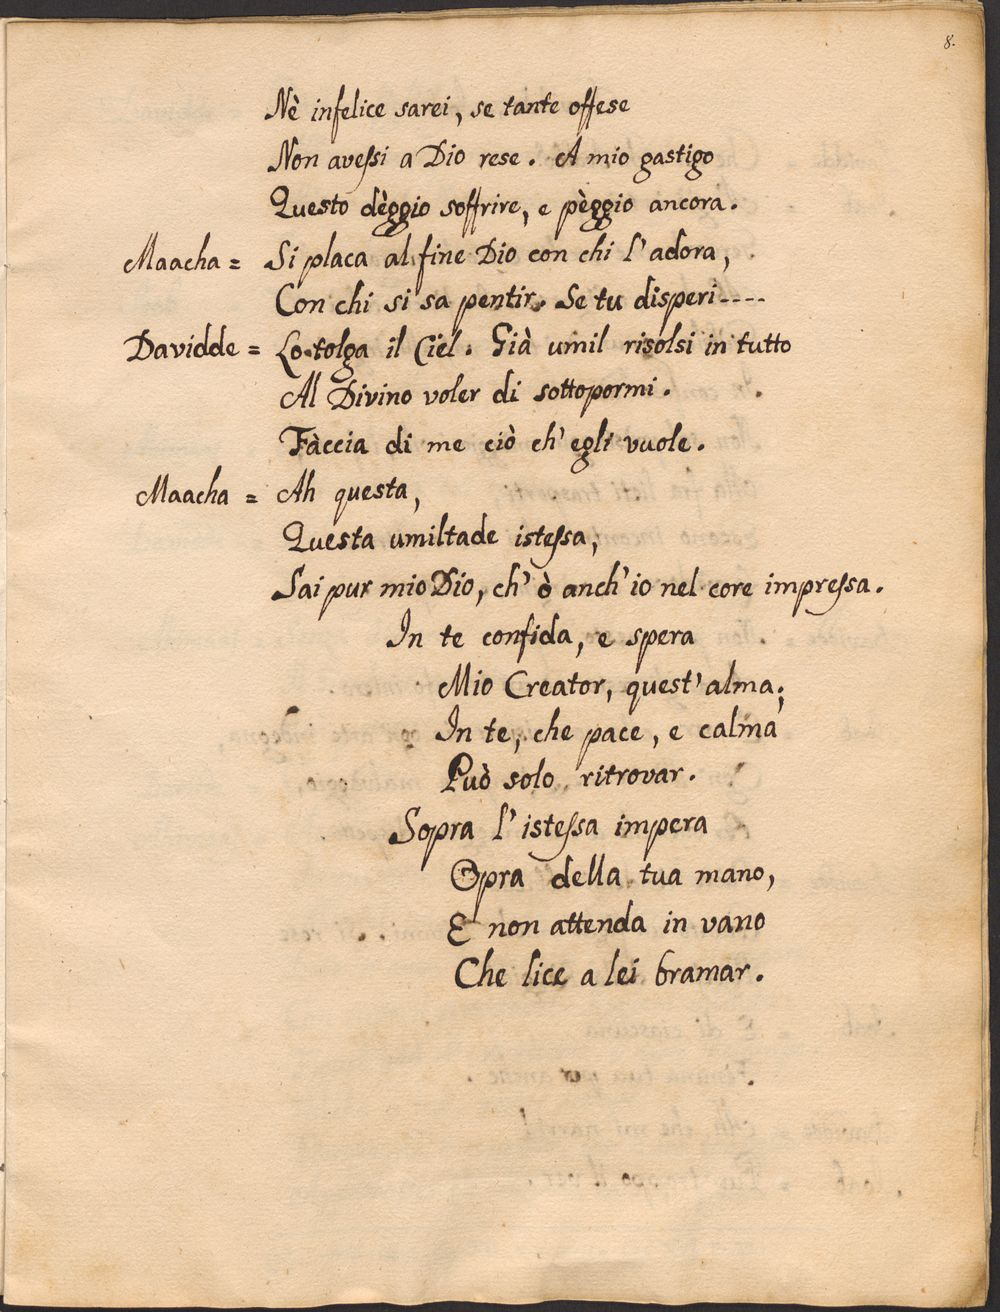 8.
Nè infelice sarei, se tante offese
Non avessi a Dio rese. A mio gastigo
Questo dèggio soffrire, e pèggio ancora.
Maacha = Si placa al fine Dio con chi l'adora,
Con chi si sa pentir. Se tu disperi----
Davidde = Lo tolga il Ciel. Già umil risolsi in tutto
Al Divino voler di sottopormi.
Fàccia di me ciò ch'egli vuole.
Maacha = Ah questa,
Questa umiltade istessa,
Sai pur mio Dio, ch'ò anch'io nel core impressa.
In te confida, e spera
Mio Creator, quest'alma;
In te, che pace, e calma
Può solo ritrovar.
Sopra l'istessa impera
Opra della tua mano,
E non attenda in vano
Che lice a lei bramar.